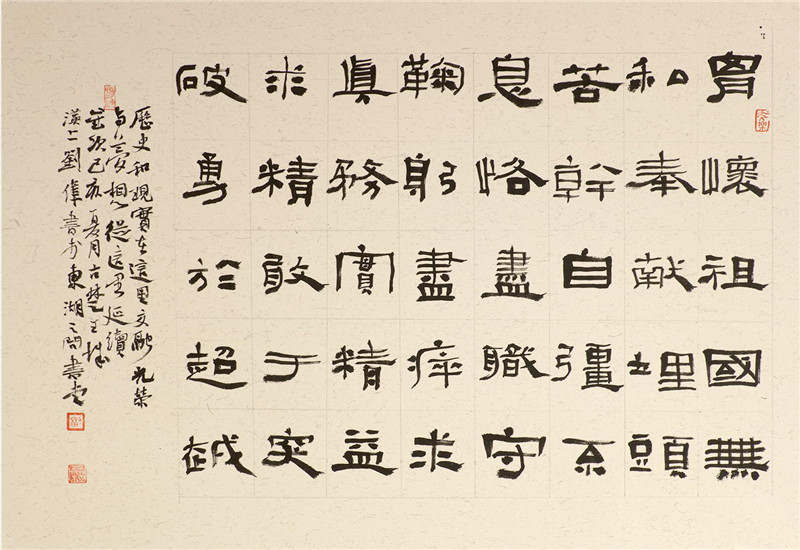 胷懷祖國無
私奉献埋頭
苦幹自彊不
息恪盡職守
鞠躬盡瘁求
眞務實精益
求精敢于突
破勇於超越
歷史和現實在這里交融光榮
与夢想從這里延續
歲次己亥夏月古楚
漢上劉偉書於東湖之書堂